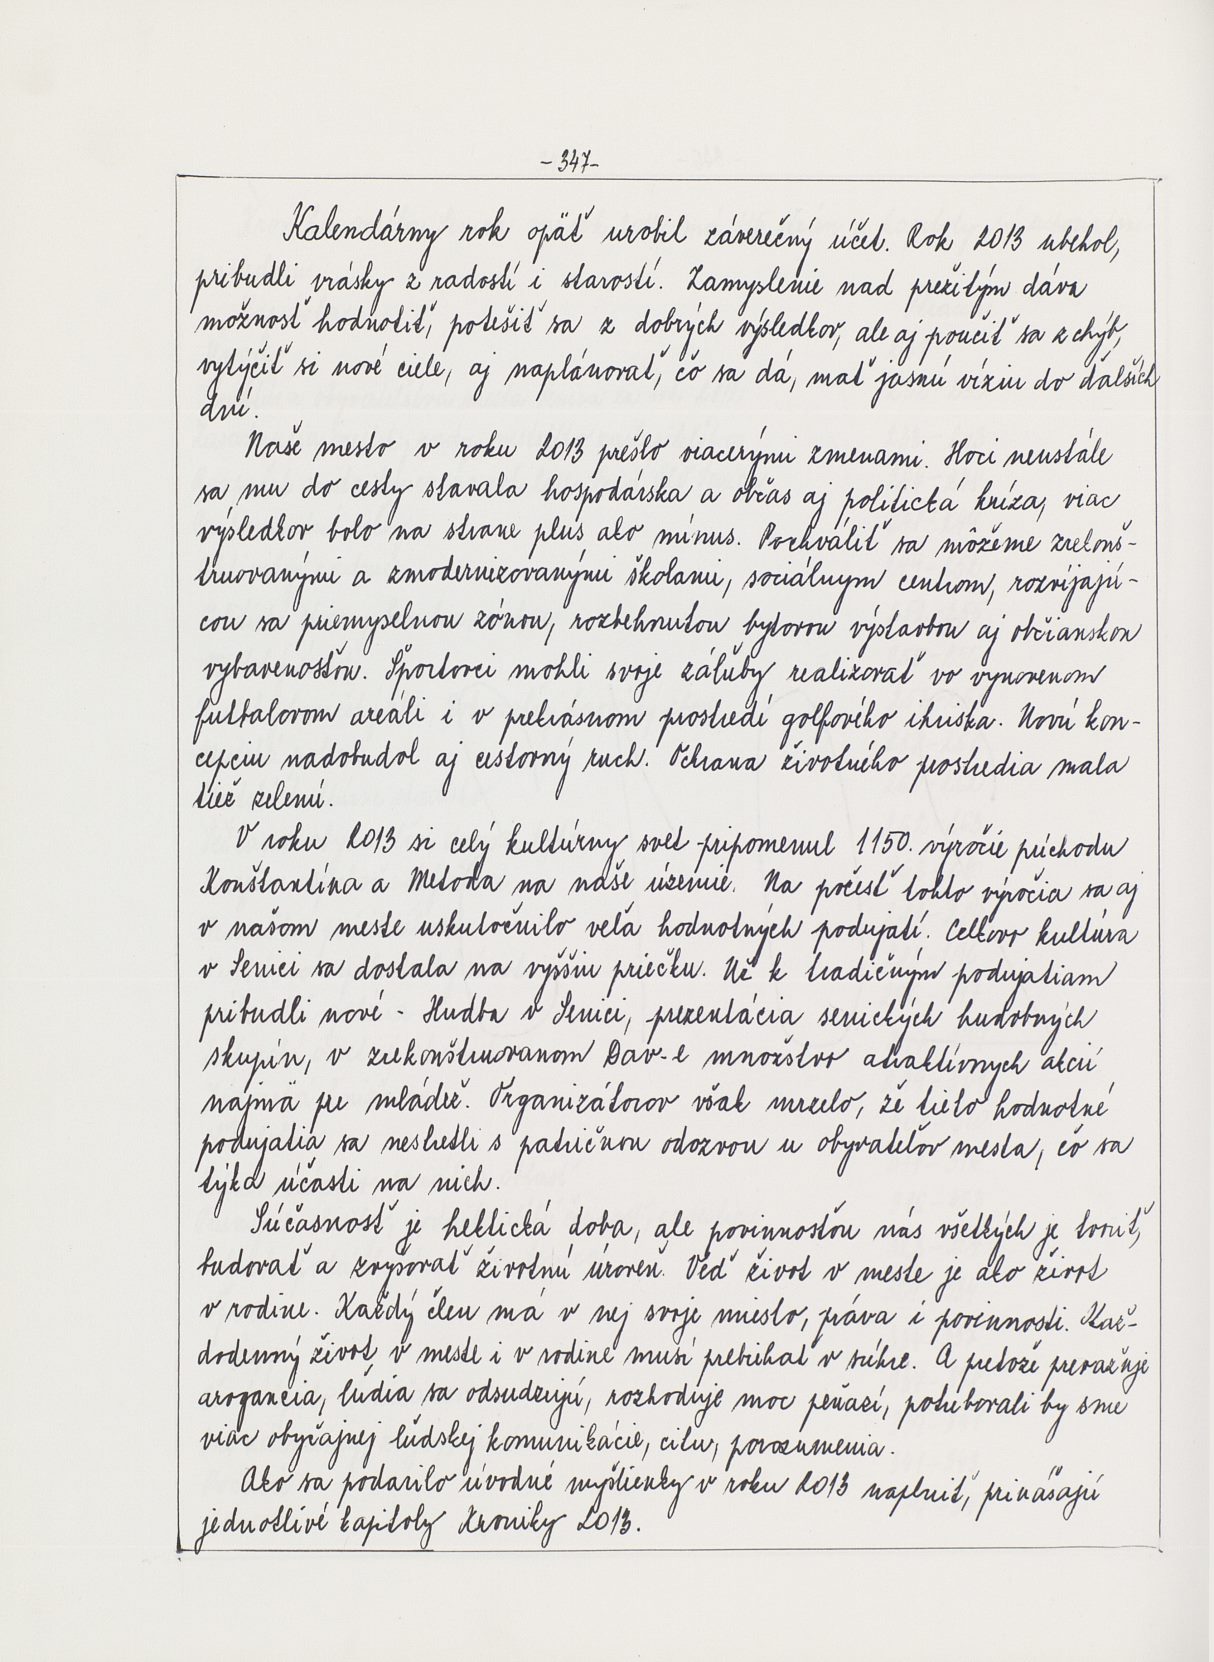 -347-
Kalendárny rok opäť urobil záverečný účet. Rok 2013 ubehol,
pribudli vrásky z radostí i starostí. Zamyslenie nad prežitým dáva
možnosť hodnotiť, potešiť sa z dobrých výsledkov, ale aj poučiť sa z chýb,
vytýčiť si nové ciele, aj naplánovať, čo sa dá, mať jasnú víziu do ďalších
dní.
Naše mesto v roku 2013 prešlo viacerými zmenami. Hoci neustále
sa mu do cesty stavala hospodárska a občas aj politická kríza, viac
výsledkov bolo na strane plus ako mínus. Pochváliť sa môžeme zrekonš-
truovanými a zmodernizovanými školami, sociálnym centrom, rozvíjajú-
cou sa priemyselnou zónou, rozbehnutou bytovou výstavbou aj občianskou
vybavenosťou. Športovci mohli svoje záľuby realizovať vo vynovenom
futbalovom areáli i v prekrásnom prostredí golfového ihriska. Novú kon-
cepciu nadobudol aj cestovný ruch. Ochrana životného prostredia mala
tiež zelenú.
V roku 2013 si celý kultúrny svet pripomenul 1150. výročie príchodu
Konštantína a Metoda na naše územie. Na počesť tohto výročia sa aj
v našom meste uskutočnilo veľa hodnotných podujatí. Celkovo kultúra
v Senici sa dostala na vyššiu priečku. Už k tradičným podujatiam
pribudli nové - Hudba v Senici, prezentácia senických hudobných
skupín, v zrekonštruovanom Dav-e množstvo atraktívnych akcií
najmä pre mládež. Organizátorov však mrzelo, že tieto hodnotné
podujatia sa nestretli s patričnou odozvou u obyvateľov mesta, čo sa
týka účasti na nich.
Súčasnosť je hektická doba, ale povinnosťou nás všetkých je tvoriť,
budovať a zvyšovať životnú úroveň. Veď život v meste je ako život
v rodine. Každý člen má v nej svoje miesto, práva i povinnosti. Kaž-
dodenný život v meste i v rodine musí prebiehať v súhre. A pretože prevažuje
arogancia, ľudia sa odsudzujú, rozhoduje moc peňazí, potrebovali by sme
viac obyčajnej ľudskej komunikácie, citu, porozumenia.
Ako sa podarilo úvodné myšlienky v roku 2013 naplniť, prinášajú
jednotlivé kapitoly Kroniky 2013.